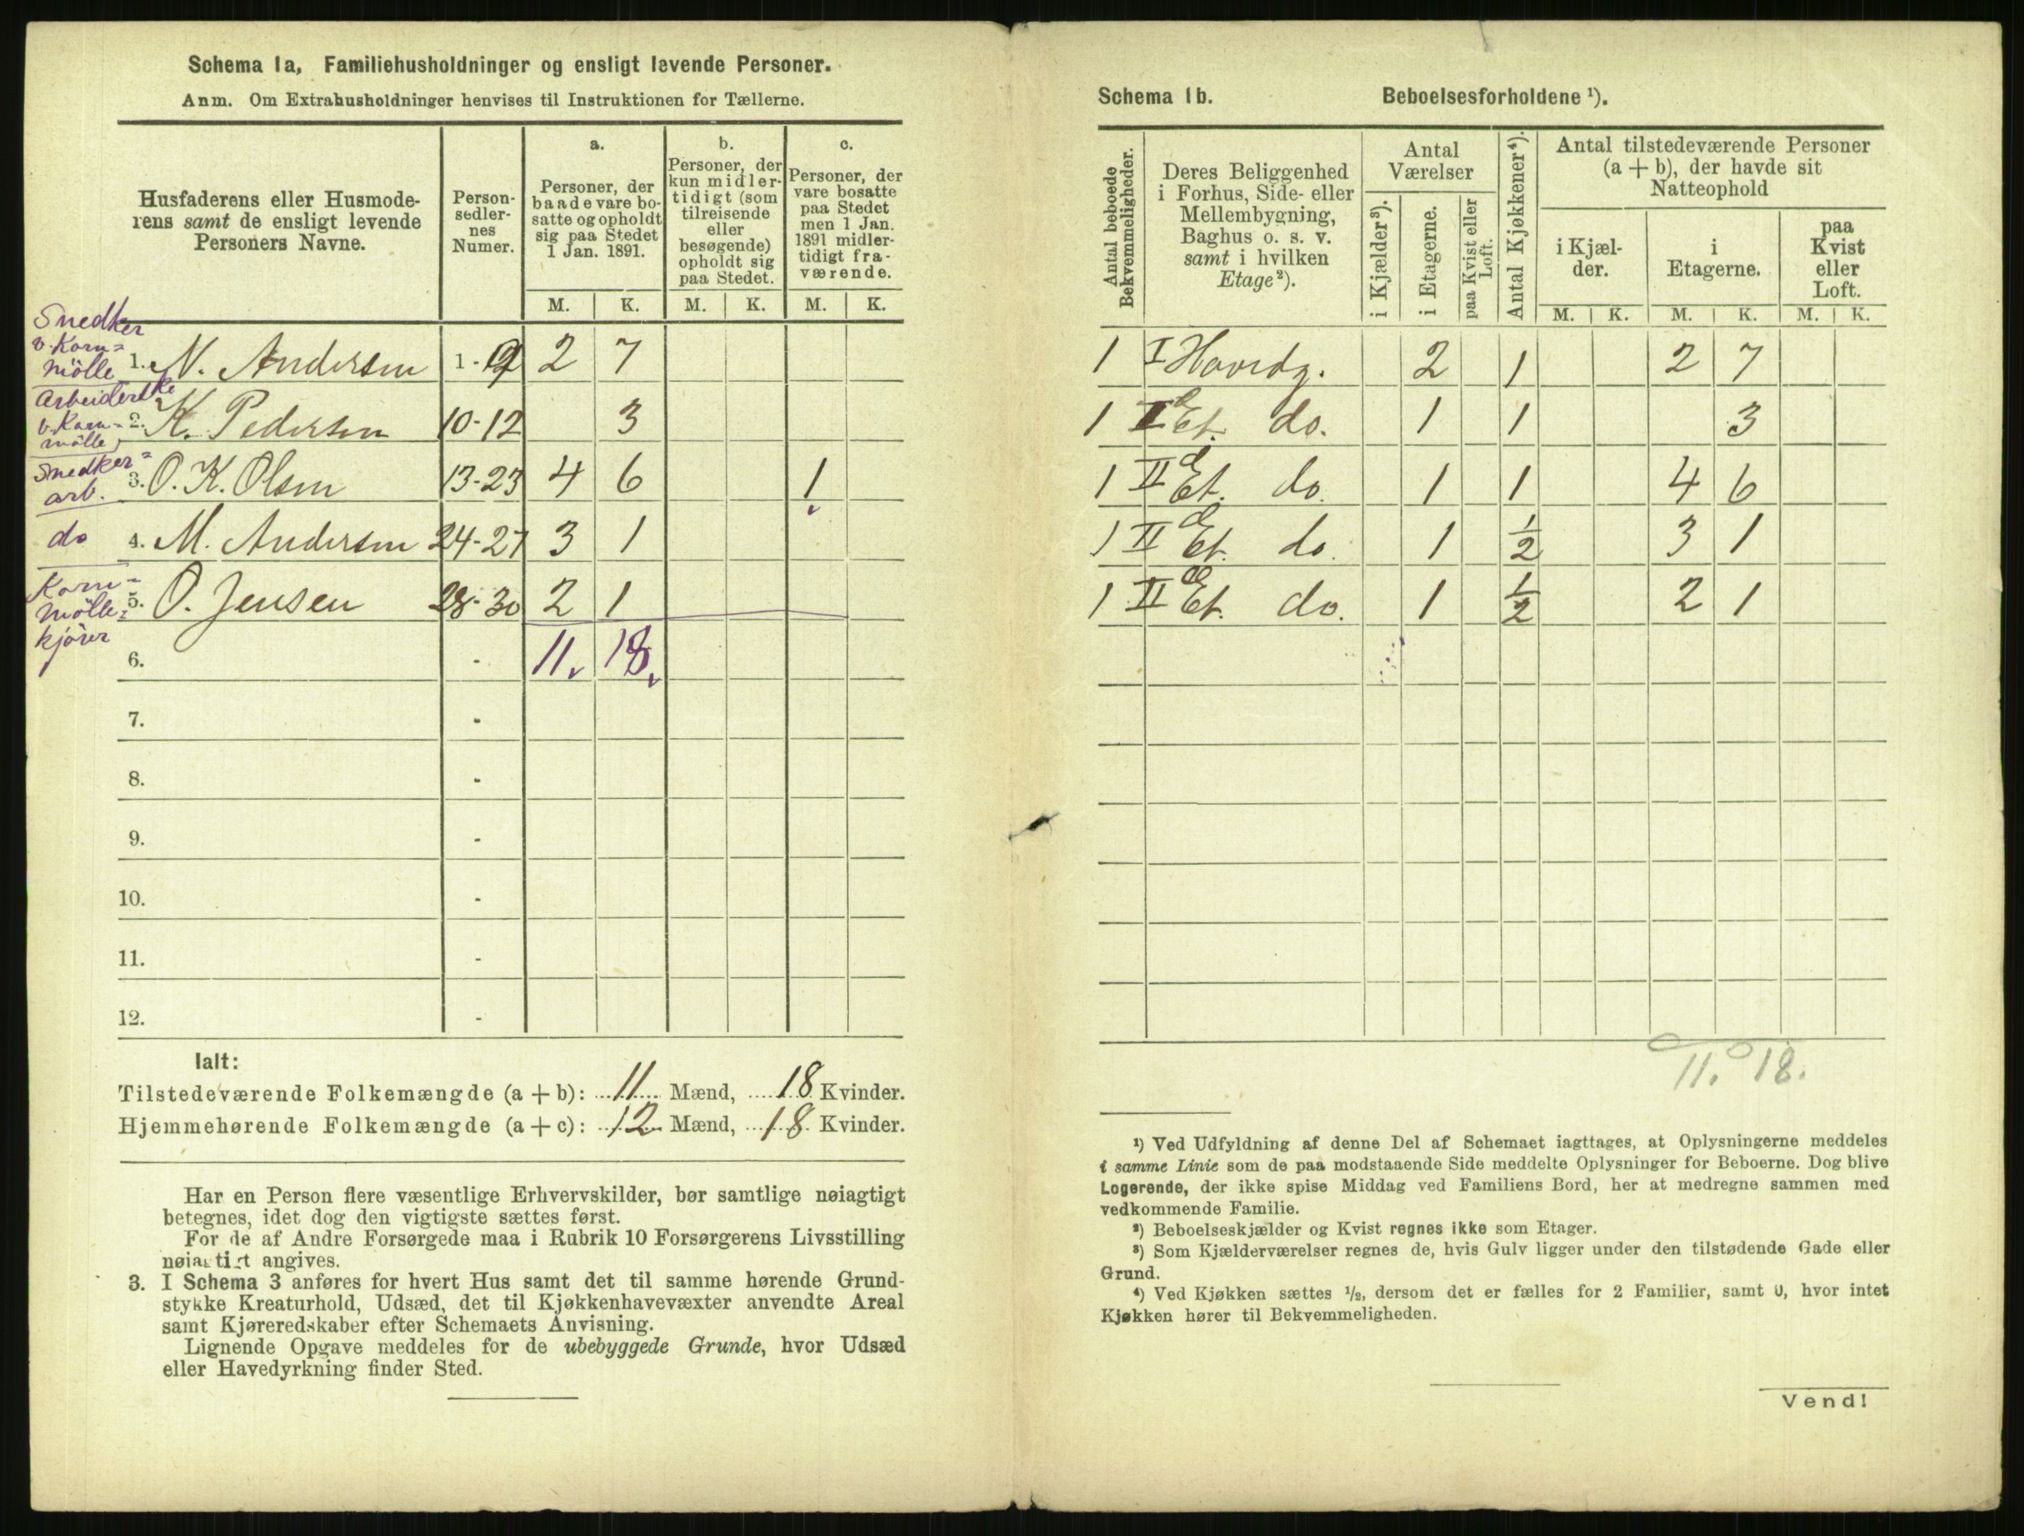 Schema 1a, Familiehusholdninger og ensligt levende Personer.
Anm. Om Extrahusholdninger henvises til Instruktionen for Tællerne.
Husfaderens eller Husmode-
rens samt de ensligt levende
Personers Navne.
Person-
sedler-
nes
Numer.
a.
Personer, der
baade vare bo-
satte og opholdt
sig paa Stedet
1 Jan. 1891.
b.
Personer, der
kun midler-
tidigt (som
tilreisende
eller
besøgende)
opholdt sig
paa Stedet.
c.
Personer, der
vare bosatte
paa Stedet
men 1 Jan.
1891 midler-
tidigt fra-
værende.
M. K. M. K. M. K.
Snedker
v. Korn=
mölle
1. N. Andersen 1-9 2 7
Arbeiderske
v. Korn-
mölle
2. K. Pedersen 10-12 3
Snedker=
arb.
3. O. K. Olsen 13-23 4 6 1
do
4. M. Andersen 24-27 3 1
Korn=
mölle=
kjörer
5. O. Jensen 28-30 2 1
6. - 11 18
7. -
8. -
9. -
10. -
11. -
12. -
Ialt:
Tilstedeværende Folkemængde (a + b): 11 Mænd, 18 Kvinder.
Hjemmehørende Folkemængde (a + c): 12 Mænd, 18 Kvinder.
Har en Person flere væsentlige Erhvervskilder, bør samtlige nøiagtigt
betegnes, idet dog den vigtigste sættes først.
For de af Andre Forsørgede maa i Rubrik 10 Forsørgerens Livsstilling
nøiagtigt angives.
3. I Schema 3 anføres for hvert Hus samt det til samme hørende Grund-
stykke Kreaturhold, Udsæd, det til Kjøkkenhavevæxter anvendte Areal
samt Kjøreredskaber efter Schemaets Anvisning.
Lignende Opgave meddeles for de ubebyggede Grunde, hvor Udsæd
eller Havedyrkning finder Sted.
Schema 1b. Beboelsesforholdene ¹).
Antal beboede
Bekvemmeligheder.
Deres Beliggenhed
i Forhus, Side- eller
Mellembygning,
Baghus o. s. v.
samt i hvilken
Etage²).
Antal
Værelser
i Kjælder³).
i Etagerne.
paa Kvist eller
Loft.
Antal Kjøkkener⁴).
Antal tilstedeværende Personer
(a + b), der havde sit
Natteophold
i Kjæl-
der.
i
Etagerne.
paa
Kvist
eller
Loft.
M. K. M. K. M. K.
1 I Hovedg. 2 1 2 7
1 I Et. do. 1 1 3
1 II Et. do. 1 1 4 6
1 II Et. do. 1 ½ 3 1
1 II Et. do. 1 ½ 2 1
11. 18.
¹) Ved Udfyldning af denne Del af Schemaet iagttages, at Oplysningerne meddeles
i samme Linie som de paa modstaaende Side meddelte Oplysninger for Beboerne. Dog blive
Logerende, der ikke spise Middag ved Familiens Bord, her at medregne sammen med
vedkommende Familie.
²) Beboelseskjælder og Kvist regnes ikke som Etager.
³) Som Kjælderværelser regnes de, hvis Gulv ligger under den tilstødende Gade eller
Grund.
⁴) Ved Kjøkken sættes ½, dersom det er fælles for 2 Familier, samt 0, hvor intet
Kjøkken hører til Bekvemmeligheden.
Vend!